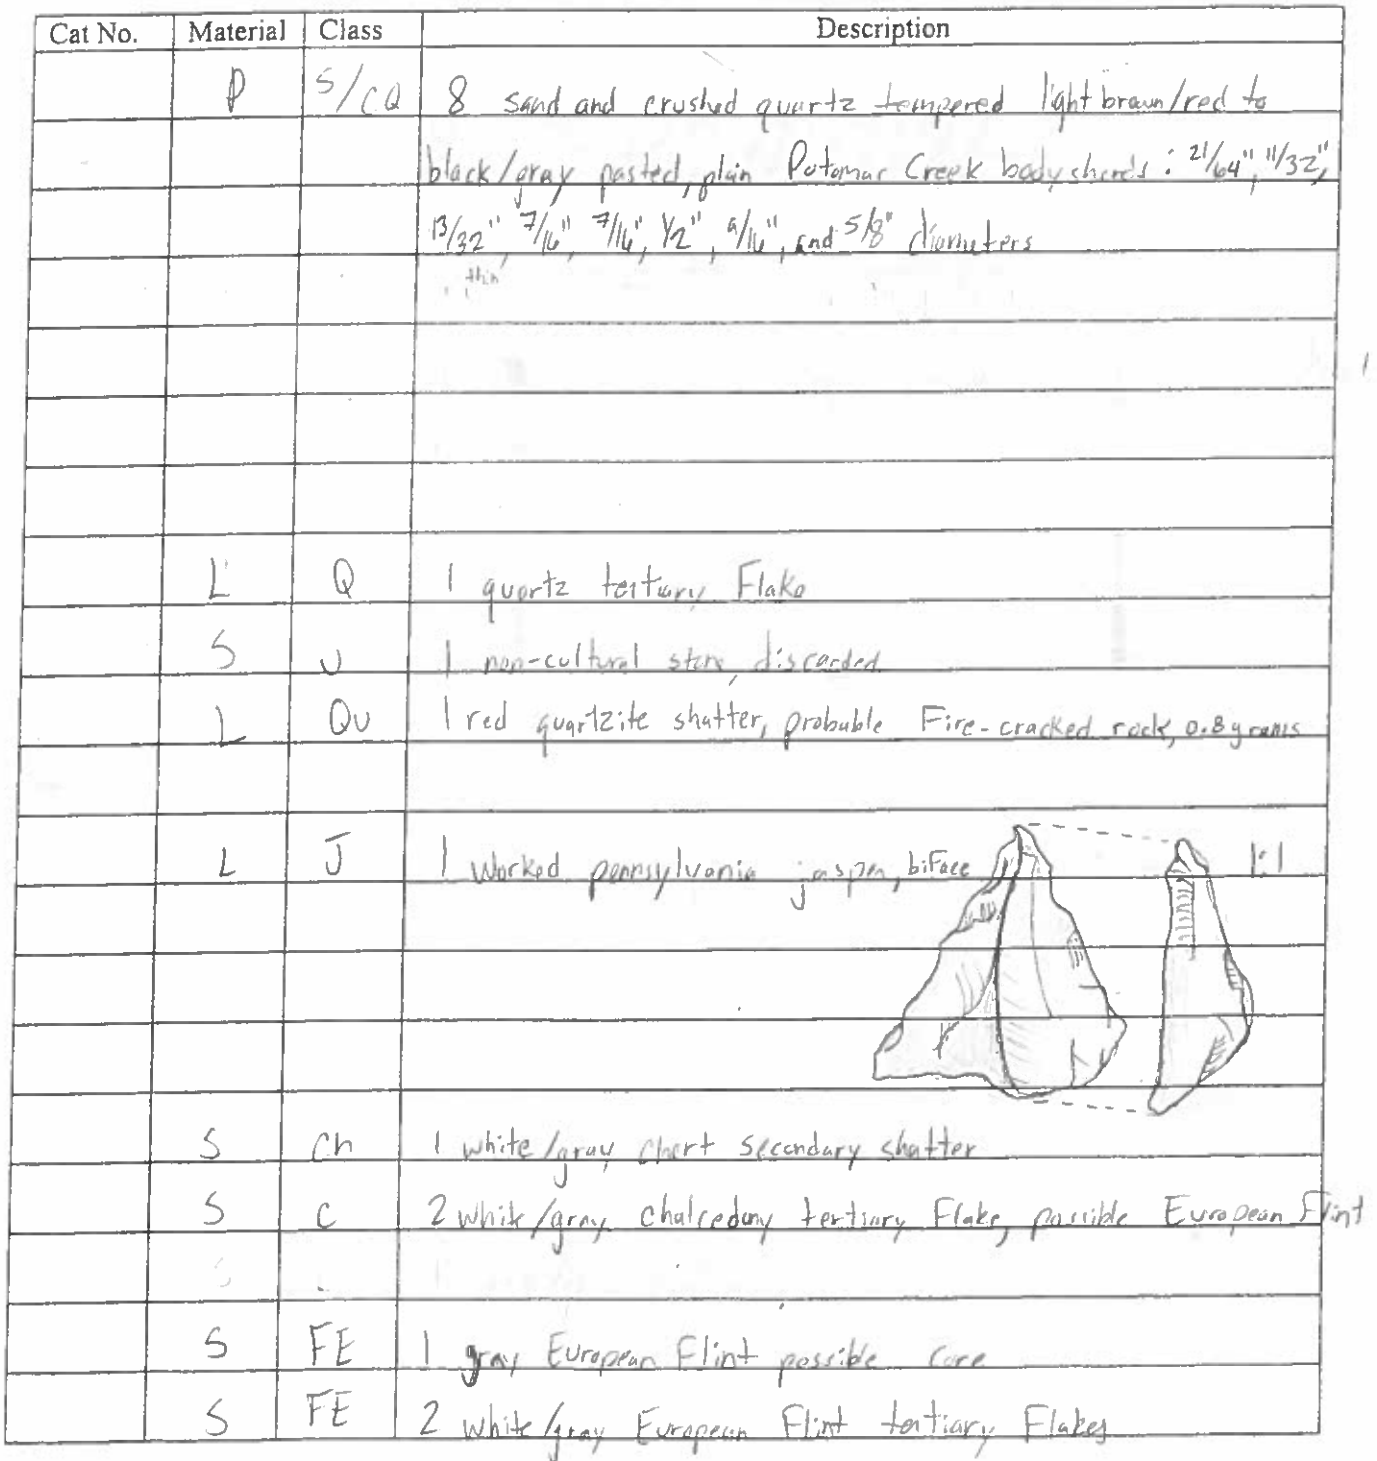 Cat No. Material Class Description
P S/CQ 8 sand and crushed quartz tempered light brown/red to
black/gray pasted, plain Potomac Creek body sherds: 21/64", 11/32",
13/32", 7/16", 7/16", 1/2", 9/16", and 5/8" diameters
thin
L Q 1 quartz tertiary Flake
S U 1 non-cultural stone, discarded
L Qu 1 red quartzite shatter, probable Fire-cracked rock, 0.8 grams
L J 1 Worked pennsylvania jasper, biFace 1:1
S Ch 1 white/gray chert secondary shatter
S C 2 white/gray chalcedony tertiary Flake, possible European Flint
S FE 1 gray European Flint possible core
S FE 2 white/gray European Flint tertiary Flakes